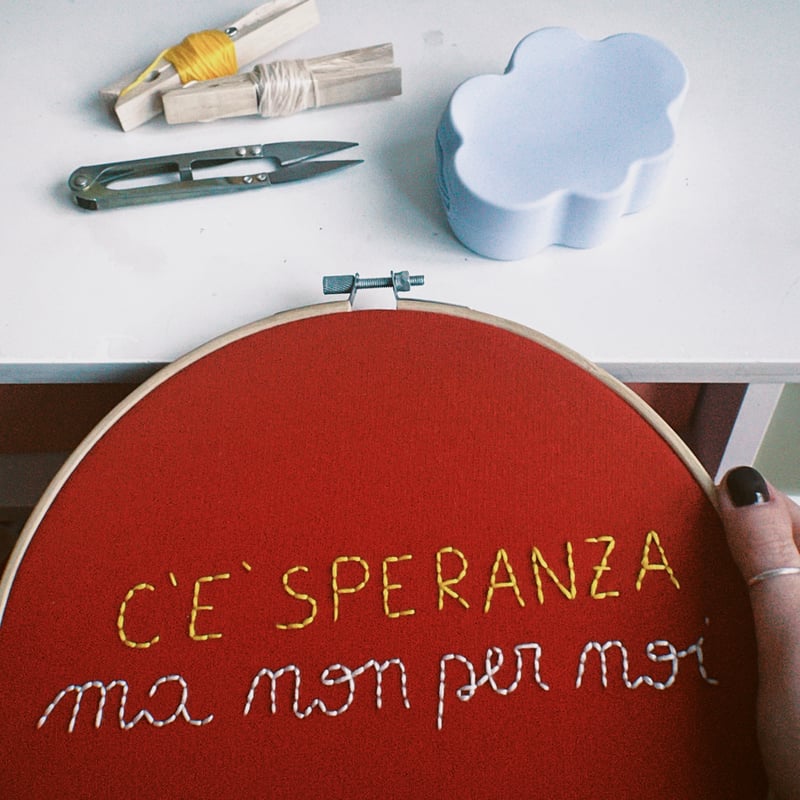 C'E` SPERANZA
ma non per noi